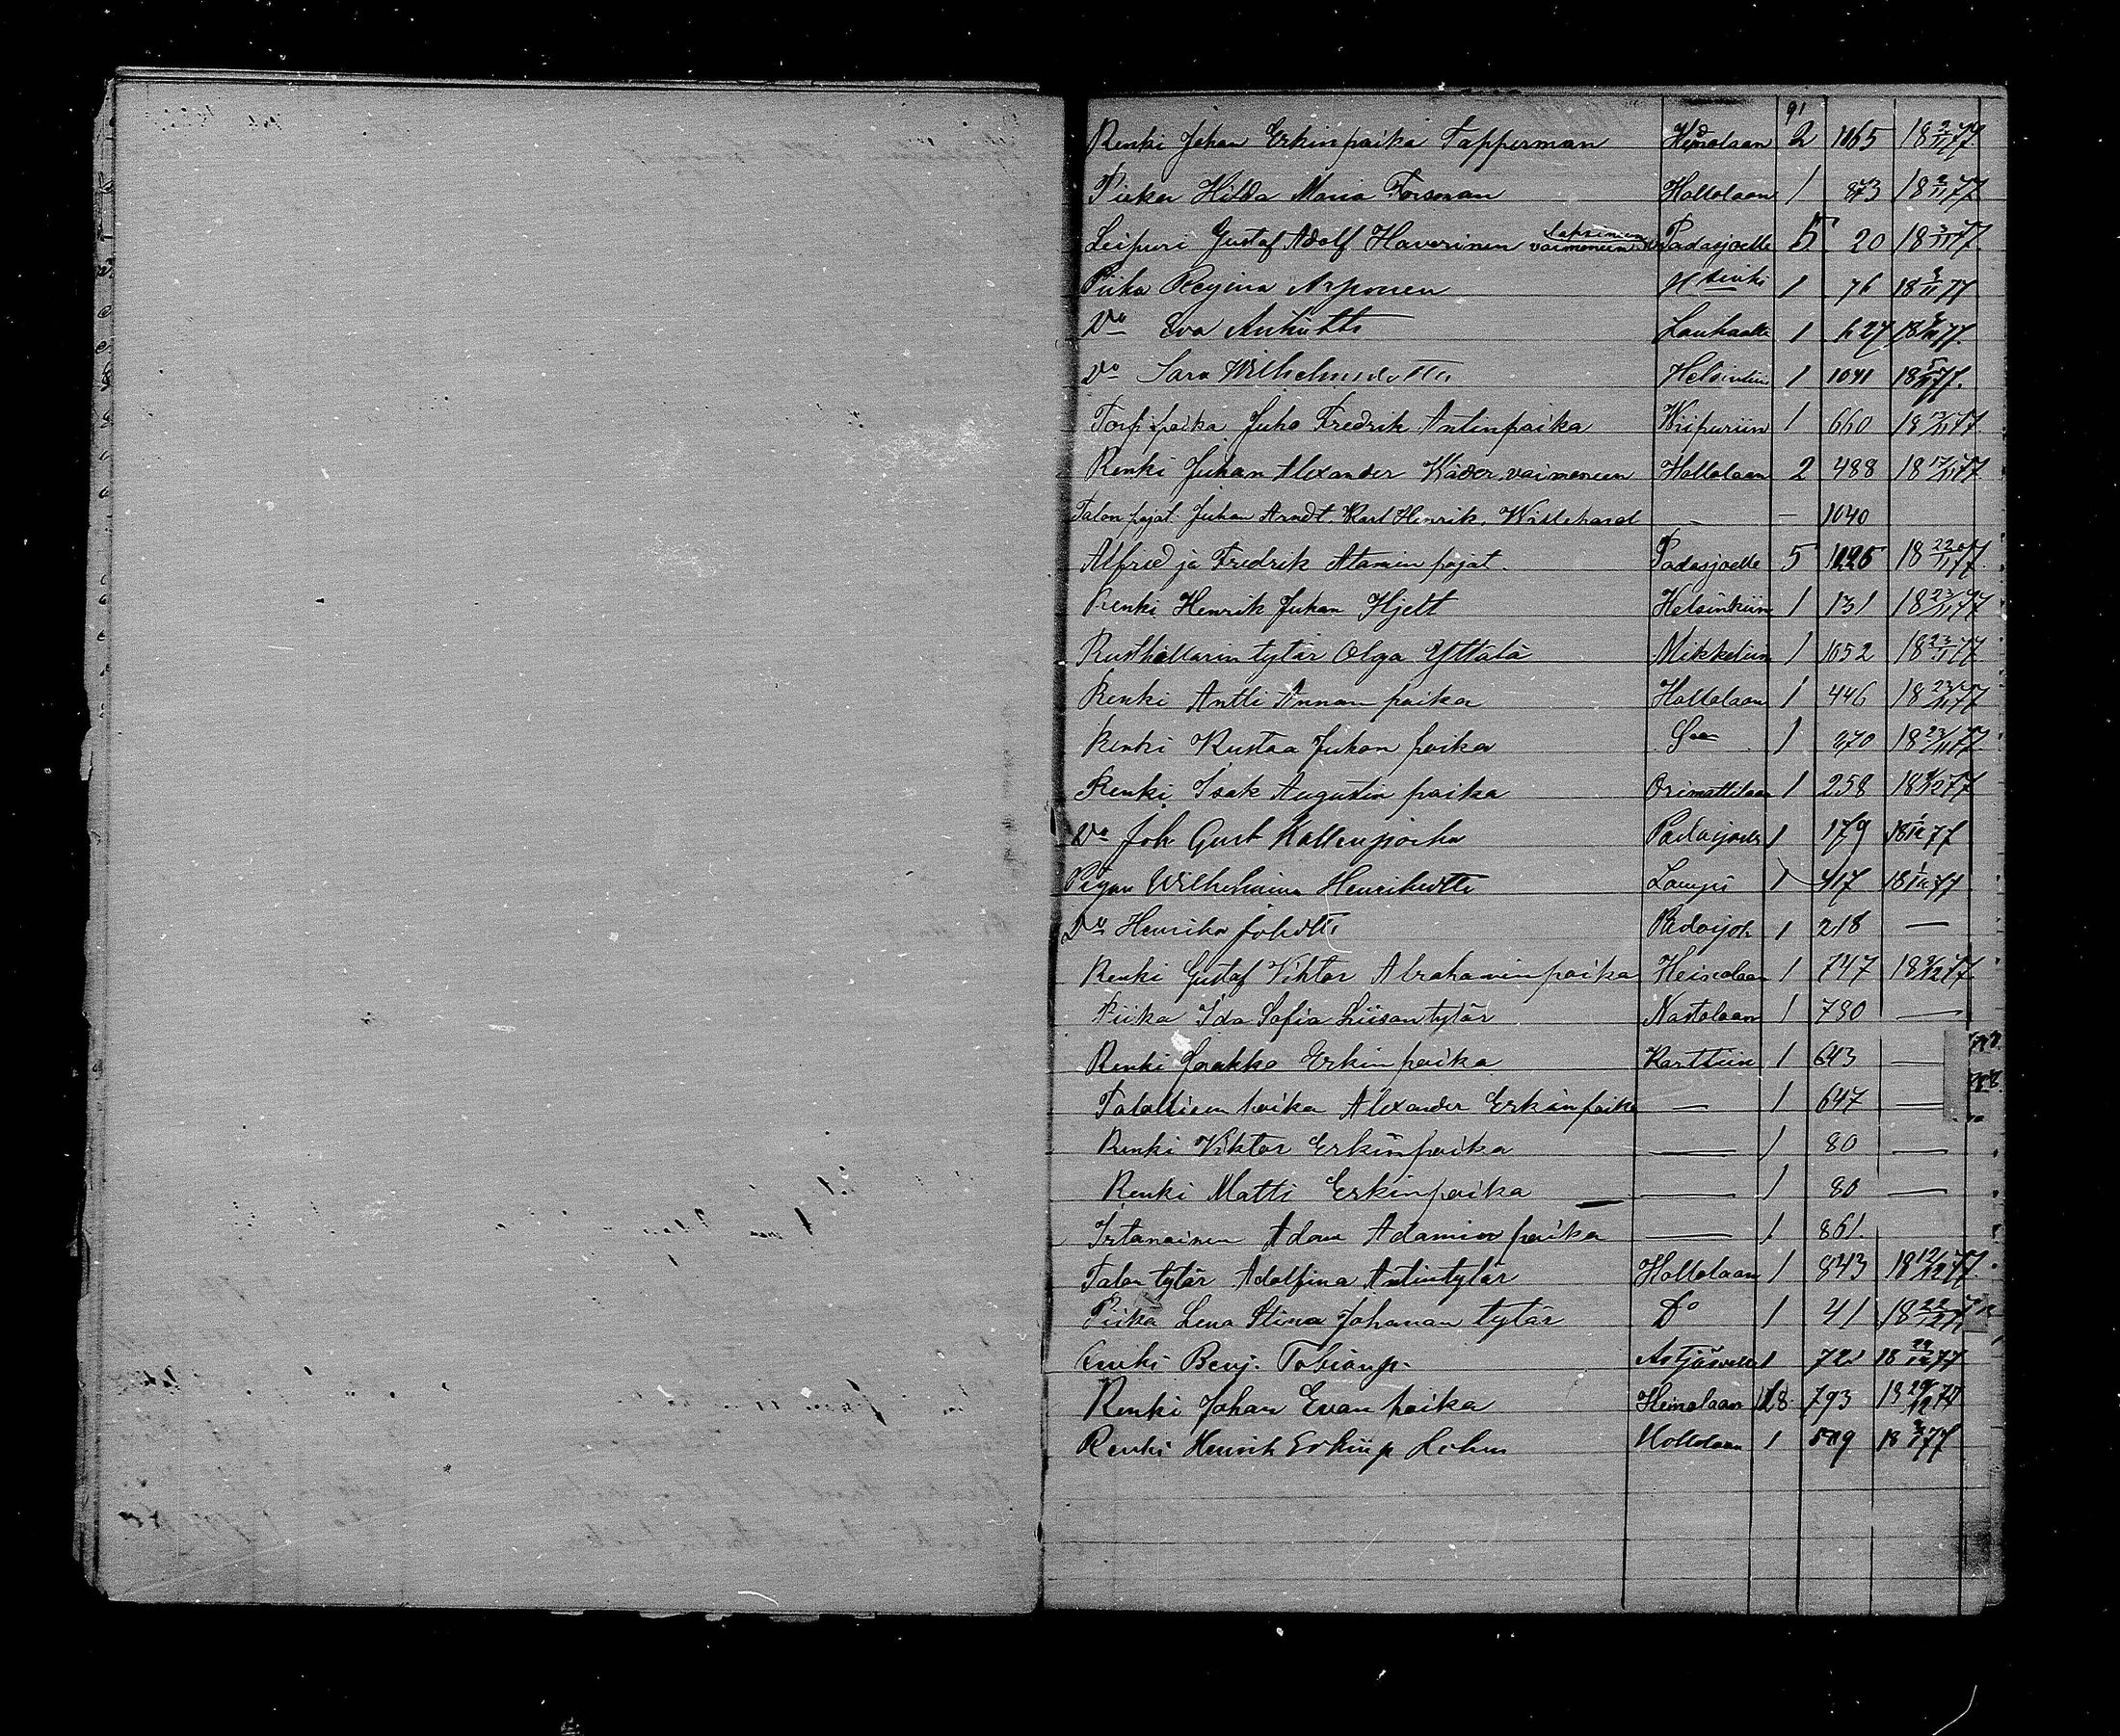 91
Renki Johan Erkinpoika Tapperman Heinolaan 2 1065 18 2/11 77
Piika Hilda Maria Forsman Hollolaan 1 873 18 2/11 77
Leipuri Gustaf Adolf Haverinen vaimoneen lapsineen Padasjoelle 5 20 18 3/11 77
Piika Regina Arponen 1 76 18 /11 77
Do Eva 1 627 18 /11 77
Do Sara Wilhelmsdottr Helsinkiin 1 1041 18 5/11 77
Torp. poika Juho Fredrik Antinpoika Wiipuriin 1 660 18 13/11 77
Renki Juhan Alexander vaimoneen Hollolaan 2 488 18 17/11 77
Talon pojat Juhan Arndt, Karl Henrik, — — 1040
Alfred ja Fredrik Atamin pojat. Padasjoelle 5 18 22/11 77
Renki Henrik Juhan Hjelt Helsinkiin 1 131 18 23/11 77
Rusthollarin tytär Olga Yttälä Mikkeliin 1 1052 18 23/11 77
Renki Antti Annan poika Hollolaan 1 446 18 23/11 77
Renki Kustaa Juhan poika 1 270 18 23/11 77
Renki Isak Augustin poika Orimattilaan 1 258 18 /12 77
Do Joh Gust Kallenpoika Padasjoelle 1 179 18 1/12 77
Pigan Wilhelmina Henriksdttr Lampi 1 417 18 1/12 77
Do Henrika Johdttr 1 218 —
Renki Gustaf Viktor Abrahaminpoika Heinolaan 1 747 18 /12 77
Piika Ida Sofia Liisantytär Nastolaan 1 780 —
Renki Jaakko Erkinpoika Karttiin 1 643 —
Talollisen poika Alexander Erkinpoika — 1 647 —
Renki Viktor Erkinpoika — 1 80 —
Renki Matti Erkinpoika — 1 80 —
Irtanainen Adam Adamin poika — 1 861.
Talon tytär Adolfina Antintytär Hollolaan 1 843 18 12/12 77
Piika Lena Stina Johanan tytär Do 1 41 18 22/12 77
Renki Benj. Tobianp. 1 18 29/12 77
Renki Johan Evan poika Heinolaan 793 18 29/12 77
Renki Henrik Erkinp Hollolaan 1 18 77